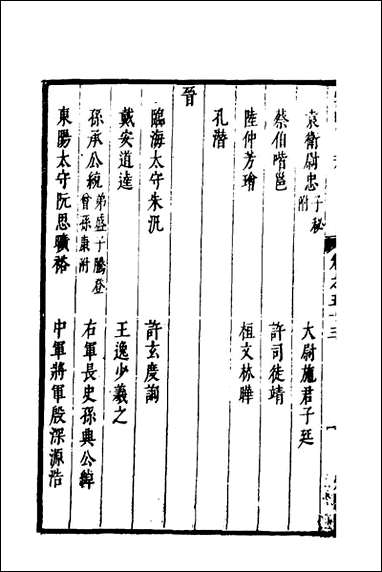 卷之五十三
袁衛尉忠 子秘附 大尉施君子廷
蔡伯喈邕 許司徒靖
陸仲芳璯 桓文林曄
孔潛
晉
臨海太守朱汎 許玄度詢
戴安道逵 王逸少羲之
孫承公統 弟盛子騰登曾孫康附 右軍長史孫典公綽
東腸太守阮思曠裕 中軍將軍殷深源浩